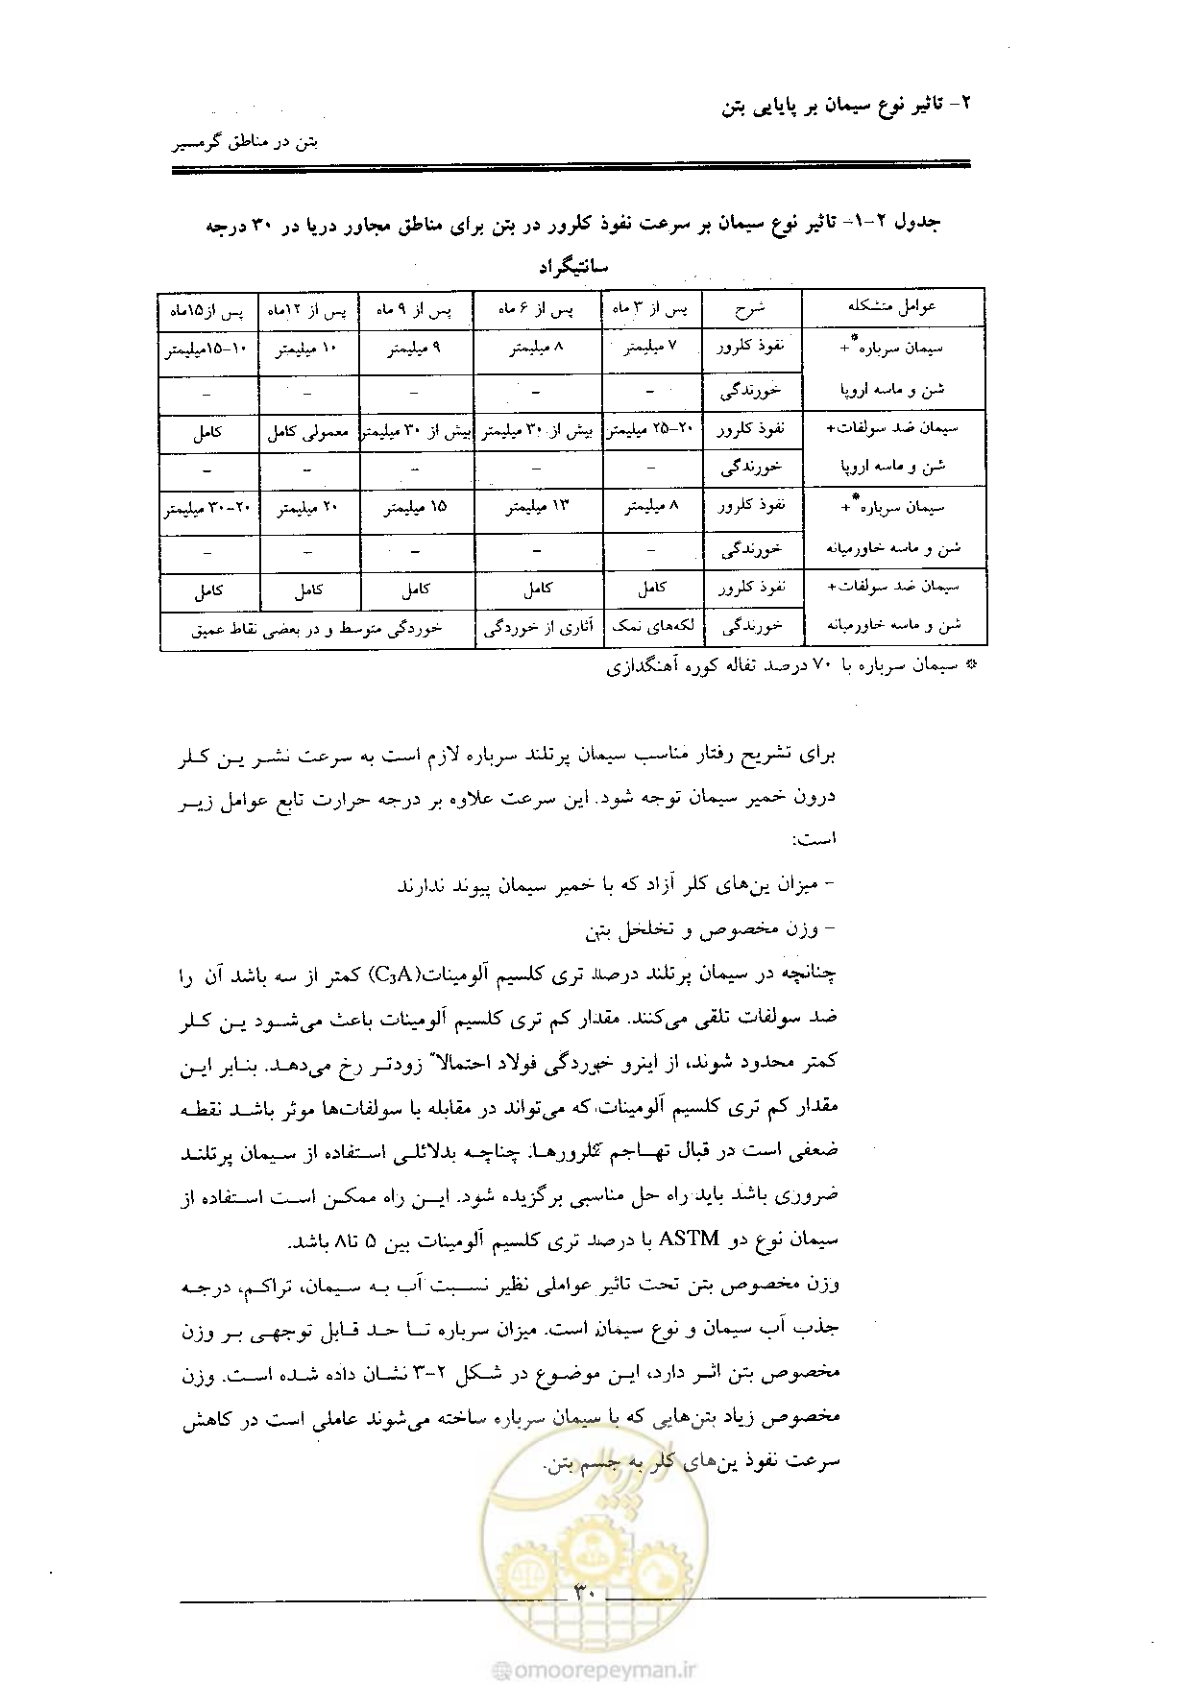 ۲- تاثیر نوع سیمان بر پایایی بتن
بتن در مناطق گرمسیر
جدول ۲-۱- تاثیر نوع سیمان بر سرعت نفوذ کلرور در بتن برای مناطق مجاور دریا در ۳۰ درجه
سانتیگراد
عوامل متشکله شرح پس از ۳ ماه پس از ۶ ماه پس از ۹ ماه پس از ۱۲ماه پس از۱۵ماه
سیمان سرباره*+ نفوذ کلرور ۷ میلیمتر ۸ میلیمتر ۹ میلیمتر ۱۰ میلیمتر ۱۰-۱۵میلیمتر
شن و ماسه اروپا خورندگی – – – – –
سیمان ضد سولفات+ نفوذ کلرور ۲۰-۲۵ میلیمتر بیش از ۳۰ میلیمتر بیش از ۳۰ میلیمتر معمولی کامل کامل
شن و ماسه اروپا خورندگی – – – – –
سیمان سرباره*+ نفوذ کلرور ۸ میلیمتر ۱۳ میلیمتر ۱۵ میلیمتر ۲۰ میلیمتر ۲۰-۳۰ میلیمتر
شن و ماسه خاورمیانه خورندگی – – – – –
سیمان ضد سولفات+ نفوذ کلرور کامل کامل کامل کامل کامل
شن و ماسه خاورمیانه خورندگی لکه‌های نمک آثاری از خوردگی خوردگی متوسط و در بعضی نقاط عمیق
* سیمان سرباره با ۷۰ درصد تفاله کوره آهنگدازی
برای تشریح رفتار مناسب سیمان پرتلند سرباره لازم است به سرعت نشر ین کلر
درون خمیر سیمان توجه شود. این سرعت علاوه بر درجه حرارت تابع عوامل زیر
است:
- میزان ین‌های کلر آزاد که با خمیر سیمان پیوند ندارند
- وزن مخصوص و تخلخل بتن
چنانچه در سیمان پرتلند درصد تری کلسیم آلومینات(C₃A) کمتر از سه باشد آن را
ضد سولفات تلقی می‌کنند. مقدار کم تری کلسیم آلومینات باعث می‌شود ین کلر
کمتر محدود شوند، از اینرو خوردگی فولاد احتمالا" زودتر رخ می‌دهد. بنابر این
مقدار کم تری کلسیم آلومینات، که می‌تواند در مقابله با سولفات‌ها موثر باشد نقطه
ضعفی است در قبال تهاجم کلرورها. چناچه بدلائلی استفاده از سیمان پرتلند
ضروری باشد باید راه حل مناسبی برگزیده شود. این راه ممکن است استفاده از
سیمان نوع دو ASTM با درصد تری کلسیم آلومینات بین ۵ تا۸ باشد.
وزن مخصوص بتن تحت تاثیر عواملی نظیر نسبت آب به سیمان، تراکم، درجه
جذب آب سیمان و نوع سیمان است. میزان سرباره تا حد قابل توجهی بر وزن
مخصوص بتن اثر دارد، این موضوع در شکل ۲-۳ نشان داده شده است. وزن
مخصوص زیاد بتن‌هایی که با سیمان سرباره ساخته می‌شوند عاملی است در کاهش
سرعت نفوذ ین‌های کلر به جسم بتن.
امور پیمان
۳۰
@omoorepeyman.ir